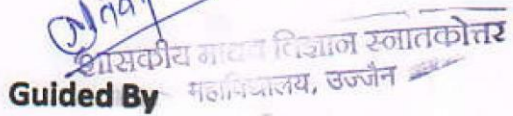 शासकीय माधव विज्ञान स्नातकोत्तर
महाविद्यालय, उज्जैन
Guided By